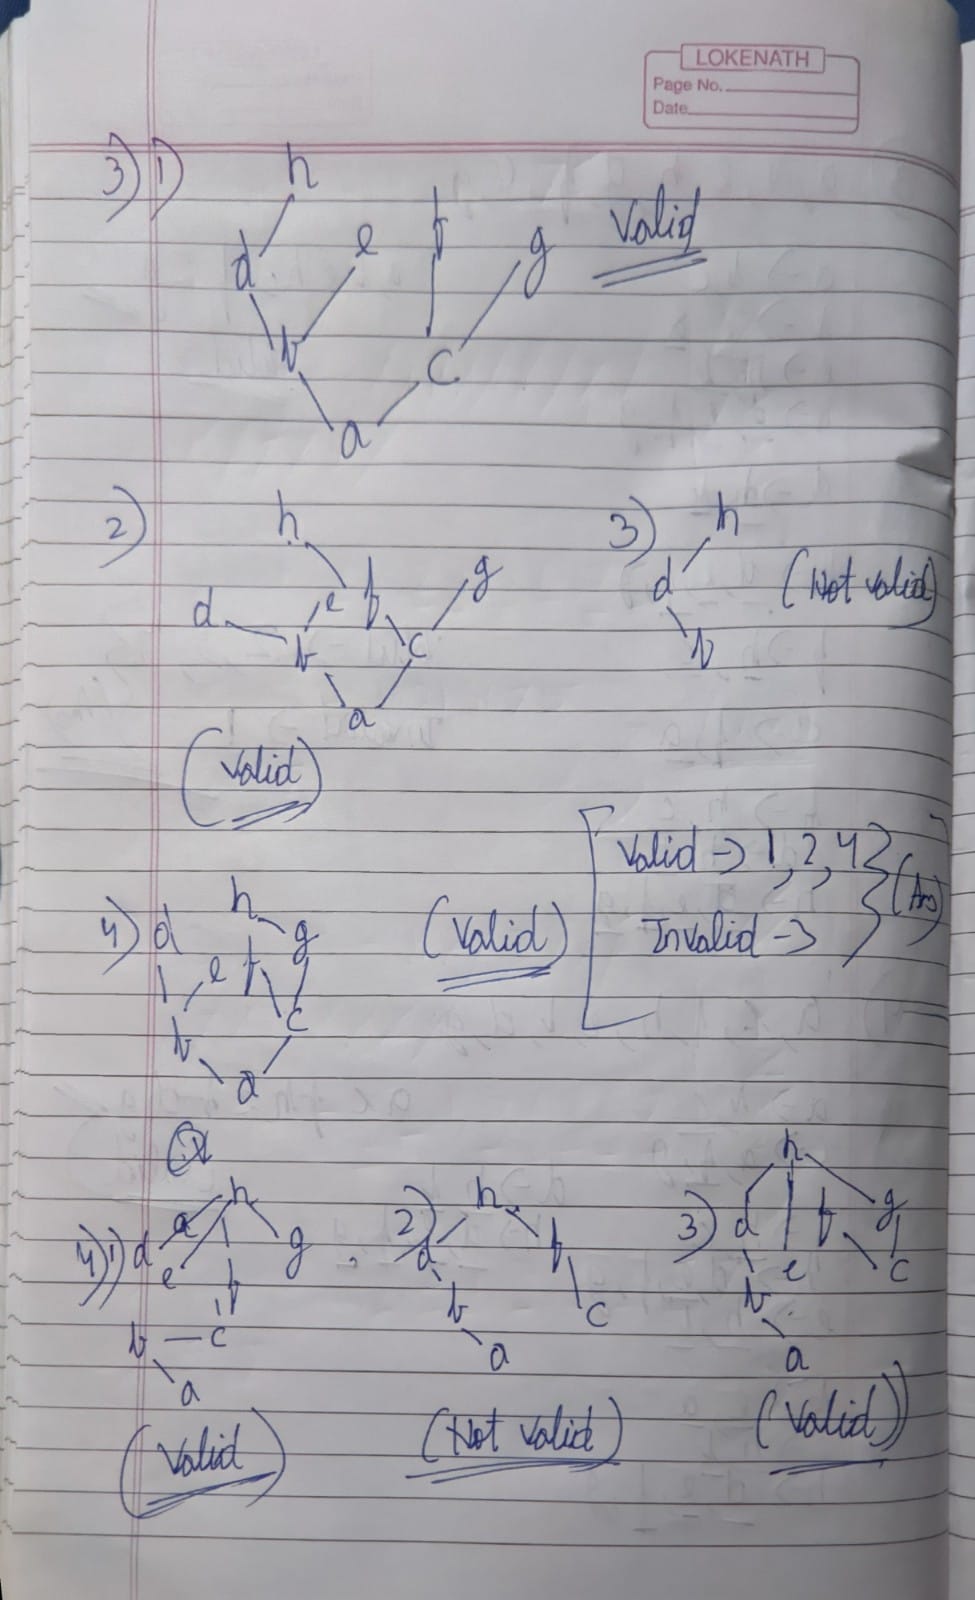 LOKENATH
Page No.
Date
3) 1)
h
d e f g
b c
a
Valid
2)
h
d e f g
b c
a
(Valid)
3)
h
d
b
(Not valid)
4)
h
d e f g
b c
a
(Valid)
Valid → 1, 2, 4
Invalid →
(Ans)
4) 1)
h
d a
e f g
b — c
a
(Valid)
2)
h
d f
b c
a
(Not valid)
3)
h
d f g
e c
b
a
(Valid)